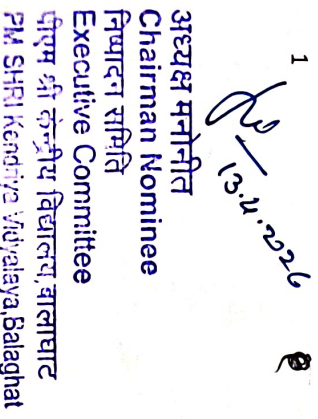 1
13.4.2026
अध्यक्ष मनोनीत
Chairman Nominee
निष्पादन समिति
Executive Committee
पीएम श्री केन्द्रीय विद्यालय,बालाघाट
PM SHRI Kendriya Vidyalaya,Balaghat